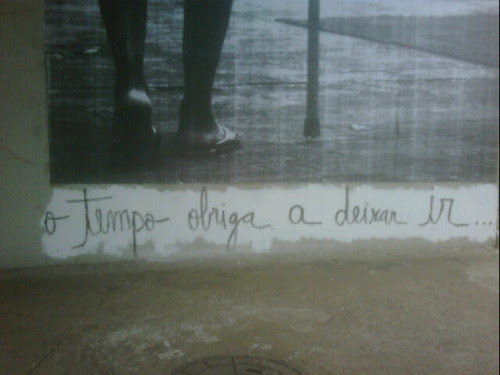 o tempo obriga a deixar ir...